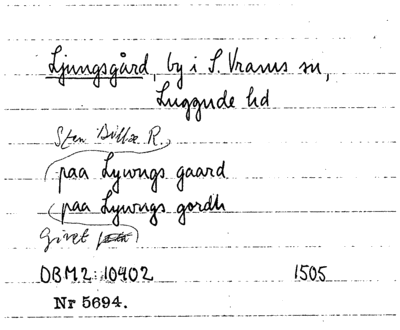 Ljungsgård, by i S. Vrams sn,
Luggude hd
Sten Bille R.
paa Lywngs gaard
paa Lywngs gordh
Givet
DBM2:10402 1505
Nr 5694.